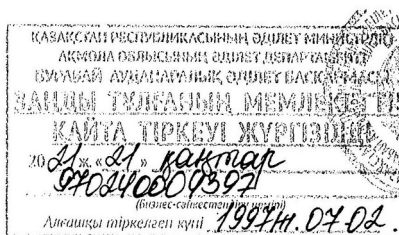 ҚАЗАҚСТАН РЕСПУБЛИКАСЫНЫҢ ӘДІЛЕТ МИНИСТРЛІГІ
АҚМОЛА ОБЛЫСЫНЫҢ ӘДІЛЕТ ДЕПАРТАМЕНТІ
БУРАБАЙ АУДАНАРАЛЫҚ ӘДІЛЕТ БАСҚАРМАСЫ
ЗАҢДЫ ТҰЛҒАНЫҢ МЕМЛЕКЕТТІК
ҚАЙТА ТІРКЕУІ ЖҮРГІЗІЛДІ
20 21 ж. «21» қаңтар
970240000397
(бизнес-сәйкестендіру нөмірі)
Алғашқы тіркелген күні 1997ж. 07.02.